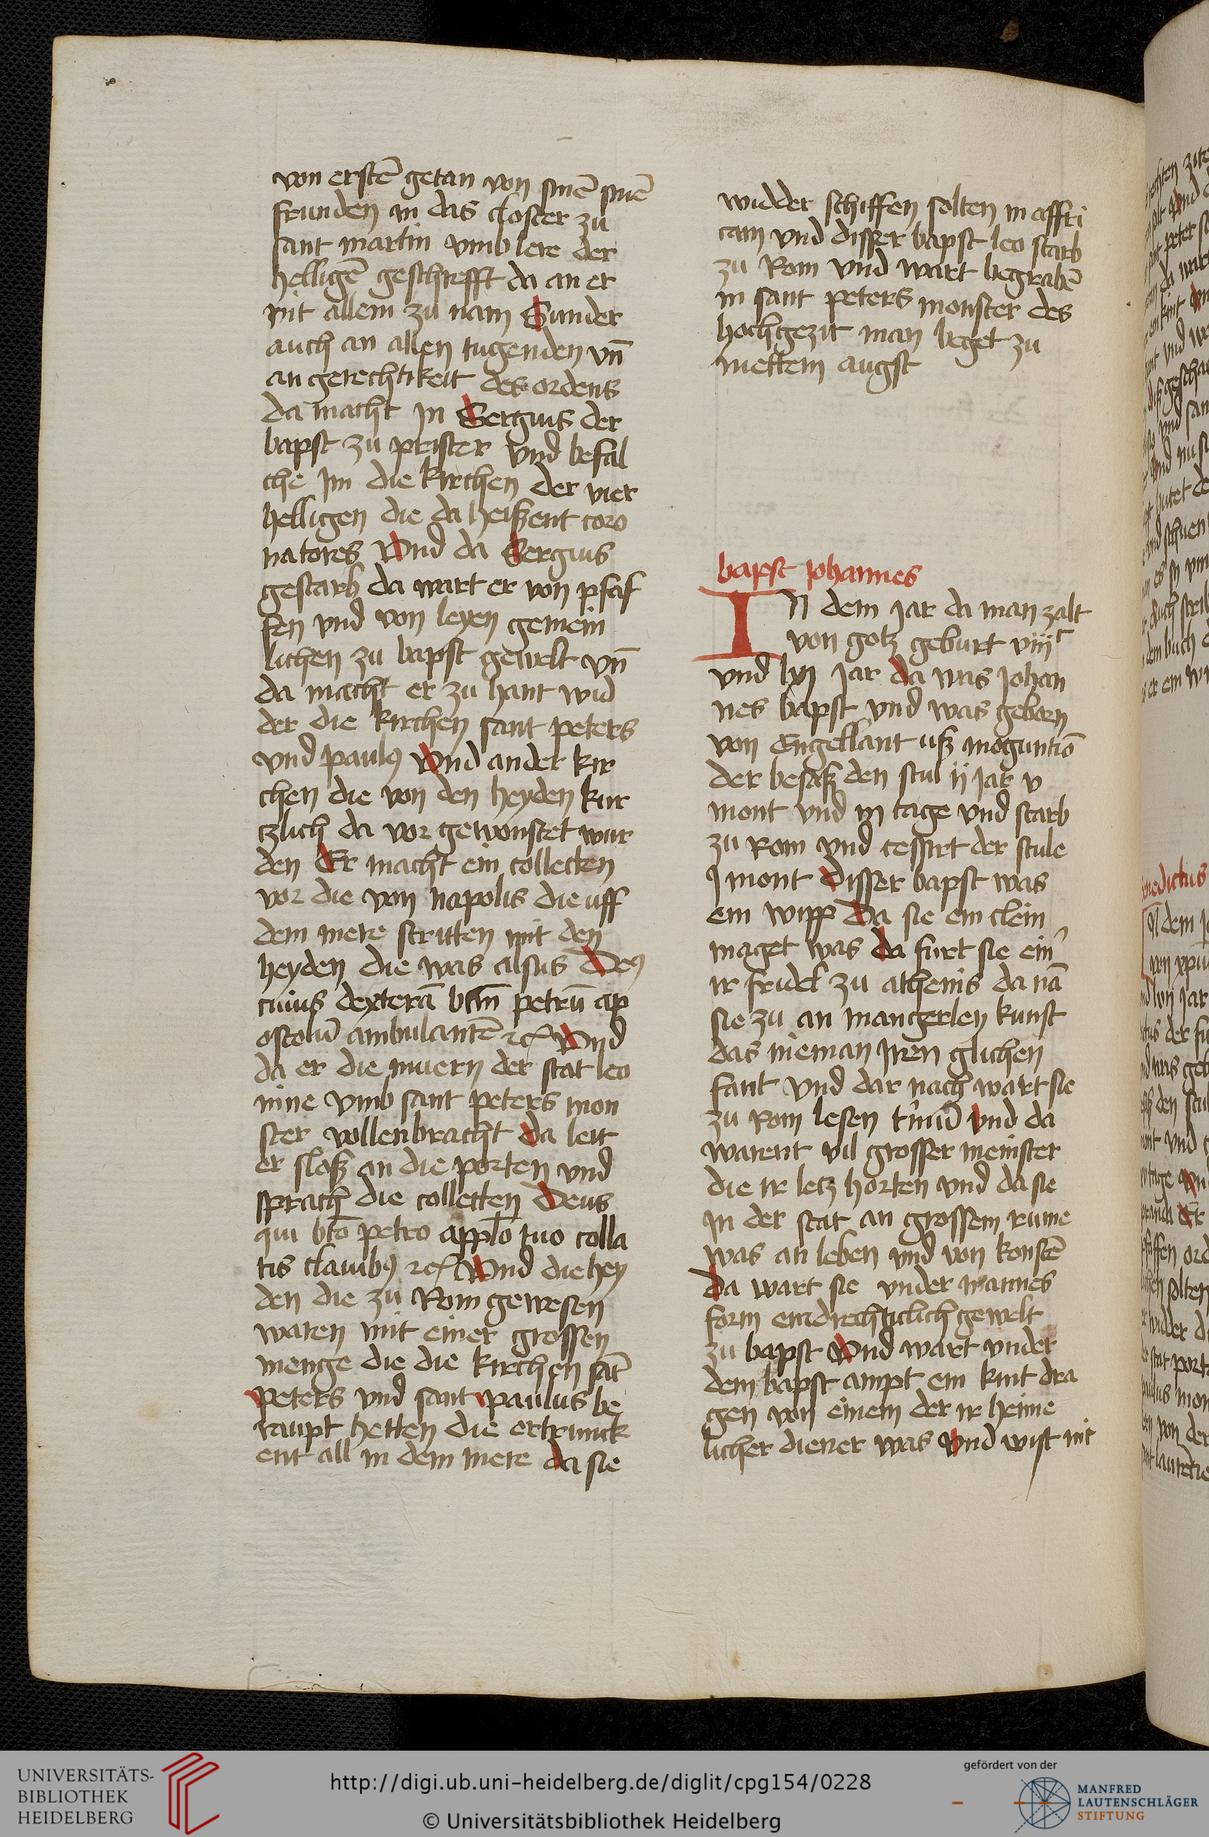 von erstē getan von sinē
frunden in das closter zu
sant martin vmb lere der
helligē geschrifft da an er
nit allein zu nam Sunder
auch an allen tugenden vn̄
an gerechtikeit des ordens
da macht in Sergius der
bapst zu prister vnd befal
che im die kirchen der vier
helligen die da heiszent coro
natores Vnd da Sergius
gestarb da wart er von pfaf
fen vnd von leyen gemein
lichen zu bapst gewelt vn̄
da macht er zu hant wid
der die kirchen sant peters
vnd paulus Vnd ander kir
chen die von den heyden kur
czlich da vor gewonstet wur
den Er macht ein collecten
vor die von napolis die uff
dem mere stritten mit den
heyden die was alsus Deus
cuius dexterā btm̄ petrū ap
ostolū ambulantē zc Vnd
da er die muern der stat leo
nine vmb sant peters mon
ster vollenbracht da leit
er slosz an die porten vnd
sprach die collecten Deus
qui bto petro applo tuo colla
tis clauibus zc Vnd die hey
den die zu Rom gewesen
waren mit einer grossen
menge die die kirchen sāt
Peters vnd sant paulus be
raupt hetten die ertrinck
ent all in dem mere da sie
widder schiffen solten in affri
cam vnd disser bapst leo starb
zu Rom vnd wart begrabē
in sant peters monster des
hochgezit man beget zu
mettem augst
bapst Johannes
IN dem Jar da man zalt
von gotz geburt viijc
vnd lvij Jar da was Johan
nes bapst vnd was geborn
von Engellant usz moguntio
der besasz den stul ij Jar v
mont vnd iij tage vnd starb
zu Rom vnd cessirt der stule
j mont Disser bapst was
ein wipp Da sie ein clein
maget was da furt sie ein
ir fridel zu athenis da nā
sie zu an mangerley kunst
das nieman iren glichen
fant vnd dar nach wart sie
zu Rom lesen vnd da
warent vil grosser meinster
die ir letz horten vnd da sie
in der stat an grossem rume
was an leben vnd von konstē
da wart sie vnder mannes
form eindrechticlich gewelt
zu bapst Vnd wart vnder
dem bapst ampt ein kint dra
gen von einem der ir heime
licher diener was vnd wist nit
UNIVERSITÄTS-
BIBLIOTHEK
HEIDELBERG
http://digi.ub.uni-heidelberg.de/diglit/cpg154/0228
© Universitätsbibliothek Heidelberg
gefördert von der
MANFRED
LAUTENSCHLÄGER
STIFTUNG